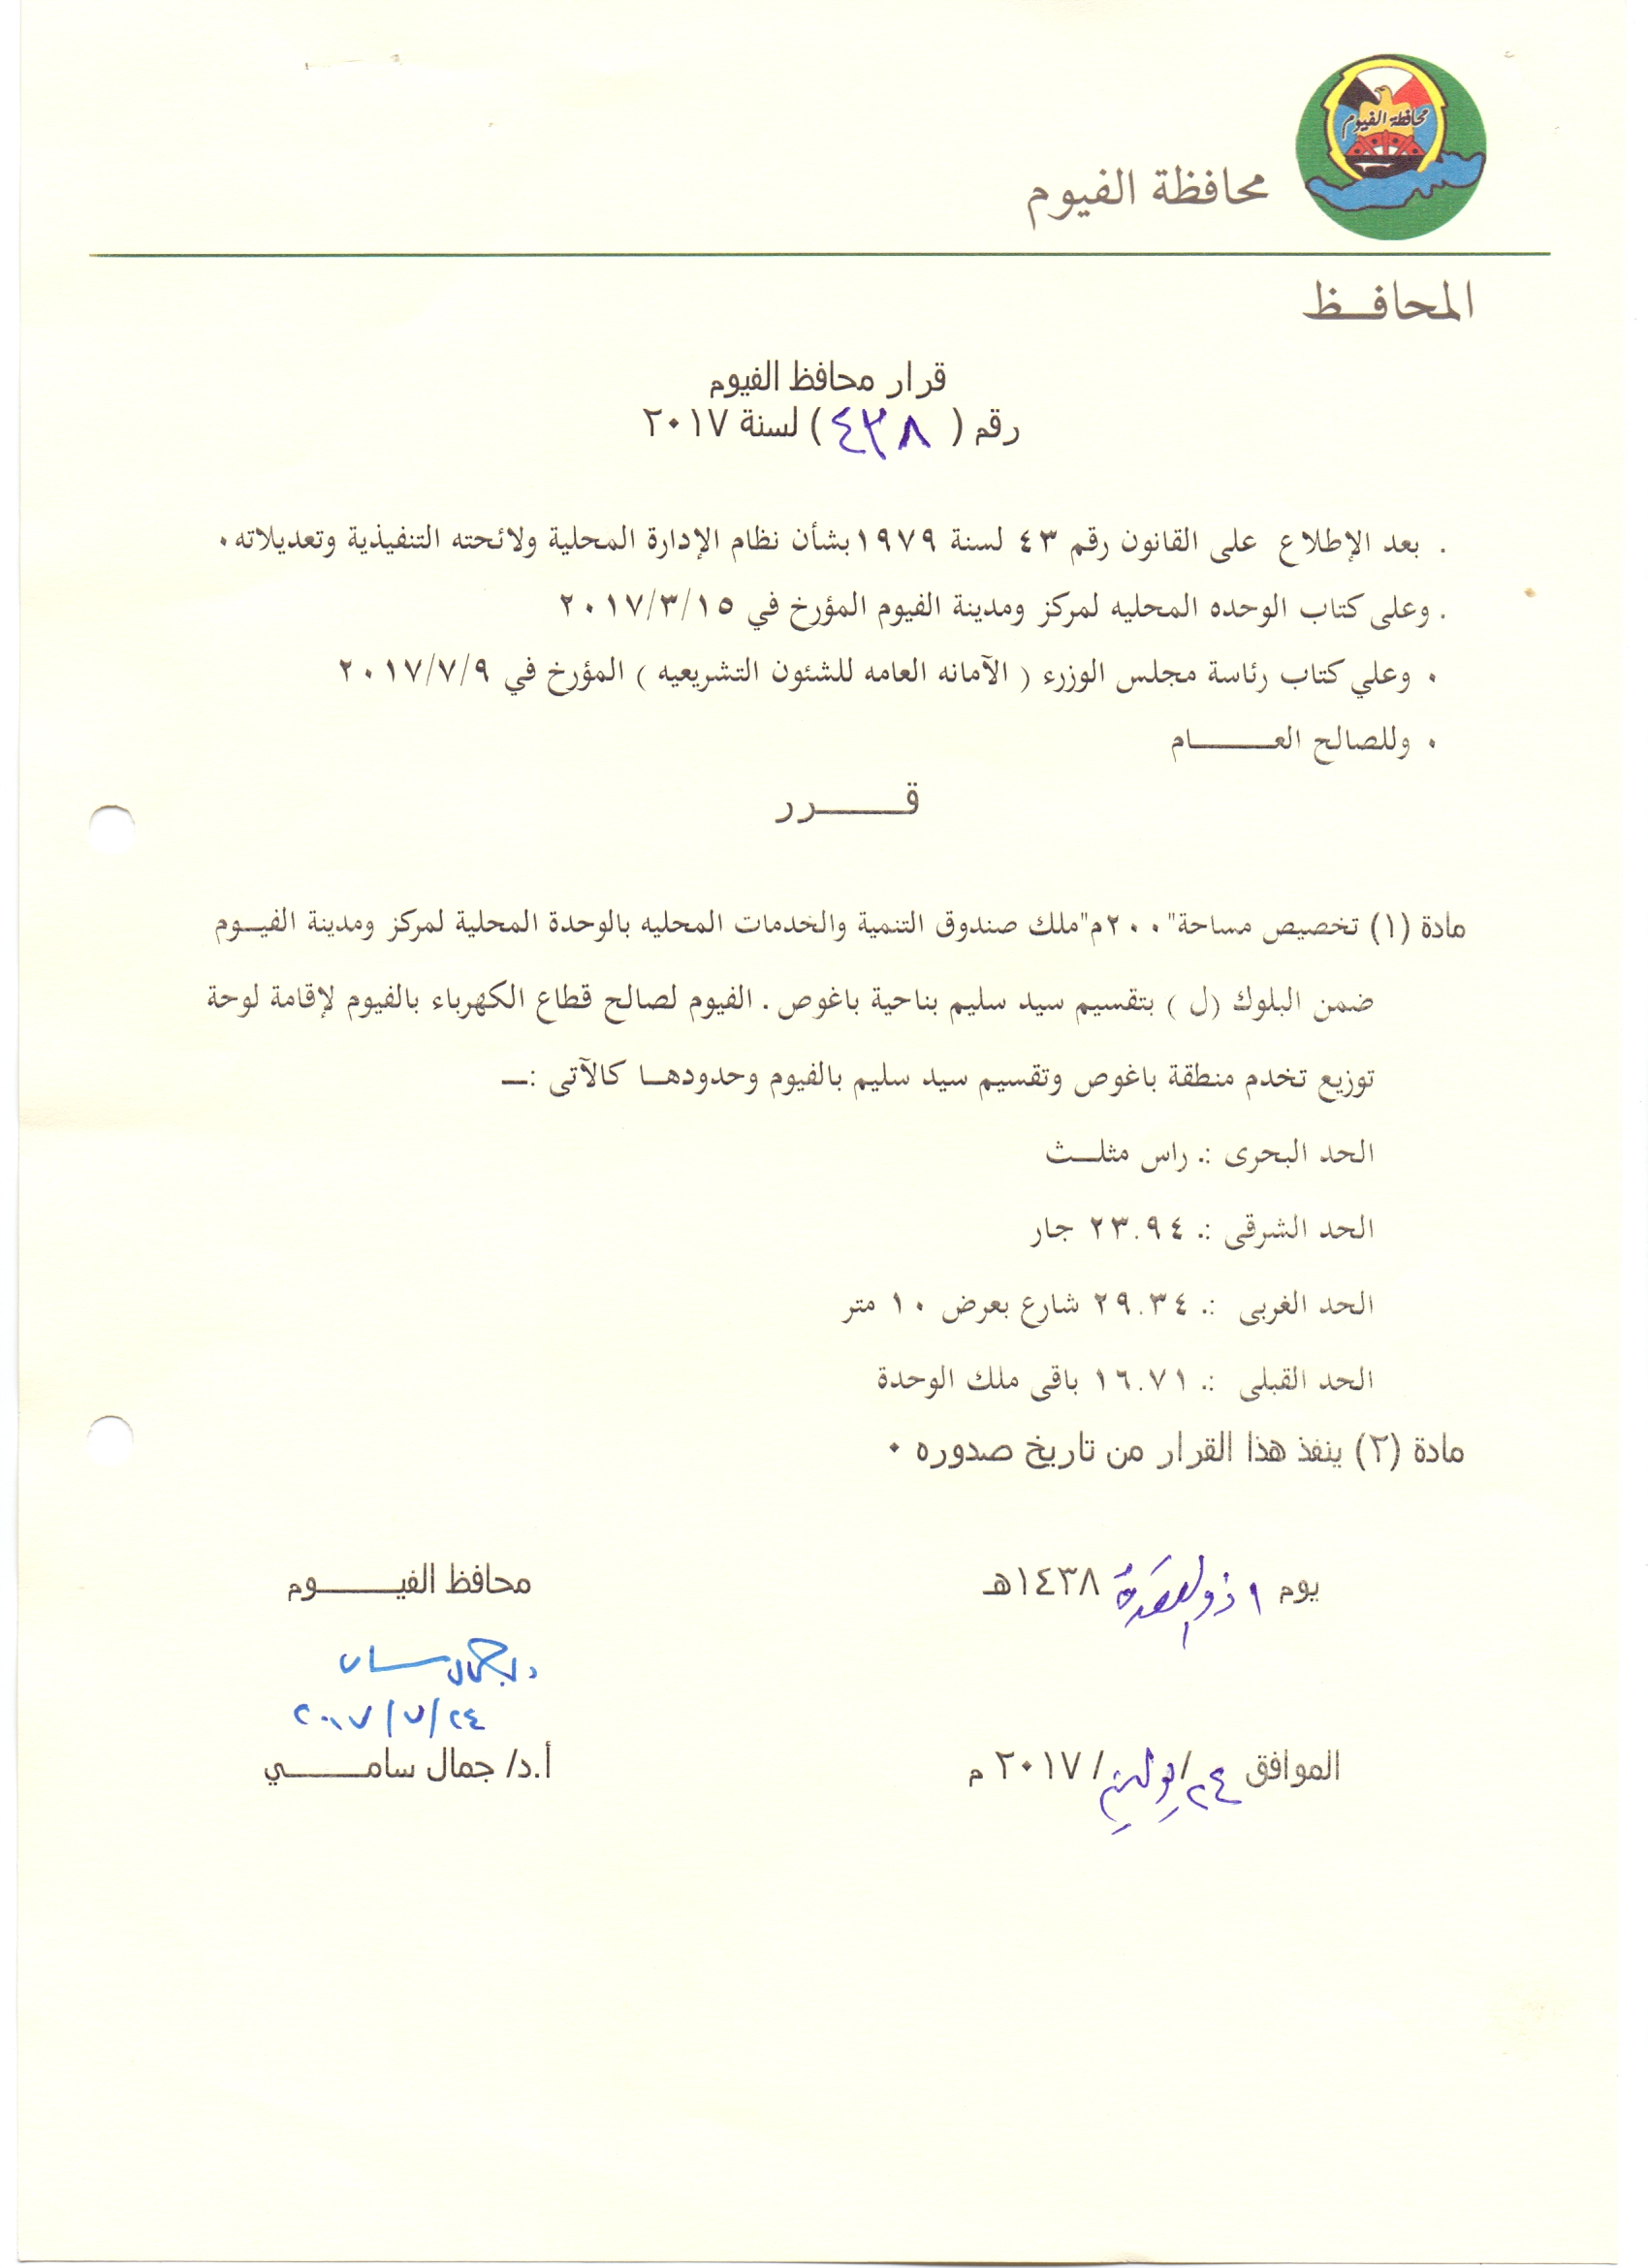 محافظة الفيوم
محافظة الفيوم
المحافـــظ
قرار محافظ الفيوم
رقم ( ٤٣٨ ) لسنة ٢٠١٧
. بعد الإطلاع على القانون رقم ٤٣ لسنة ١٩٧٩ بشأن نظام الإدارة المحلية ولائحته التنفيذية وتعديلاته .
. وعلى كتاب الوحده المحليه لمركز ومدينة الفيوم المؤرخ في ٢٠١٧/٣/١٥
. وعلي كتاب رئاسة مجلس الوزرء ( الآمانه العامه للشئون التشريعيه ) المؤرخ في ٢٠١٧/٧/٩
. وللصالح العــــــام
قـــــــرر
مادة (١) تخصيص مساحة"٢٠٠م"ملك صندوق التنمية والخدمات المحليه بالوحدة المحلية لمركز ومدينة الفيــوم
ضمن البلوك (ل ) بتقسيم سيد سليم بناحية باغوص . الفيوم لصالح قطاع الكهرباء بالفيوم لإقامة لوحة
توزيع تخدم منطقة باغوص وتقسيم سيد سليم بالفيوم وحدودهــا كالآتى :ــ
الحد البحرى :. راس مثلــث
الحد الشرقى :. ٢٣.٩٤ جار
الحد الغربى :. ٢٩.٣٤ شارع بعرض ١٠ متر
الحد القبلى :. ١٦.٧١ باقى ملك الوحدة
مادة (٢) ينفذ هذا القرار من تاريخ صدوره .
يوم ١ ذو القعدة ١٤٣٨هـ
الموافق ٢٤/يوليو/ ٢٠١٧ م
محافظ الفيـــــــوم
د. جمال سامى
٢٠١٧/٧/٢٤
أ.د/ جمال سامـــــــي